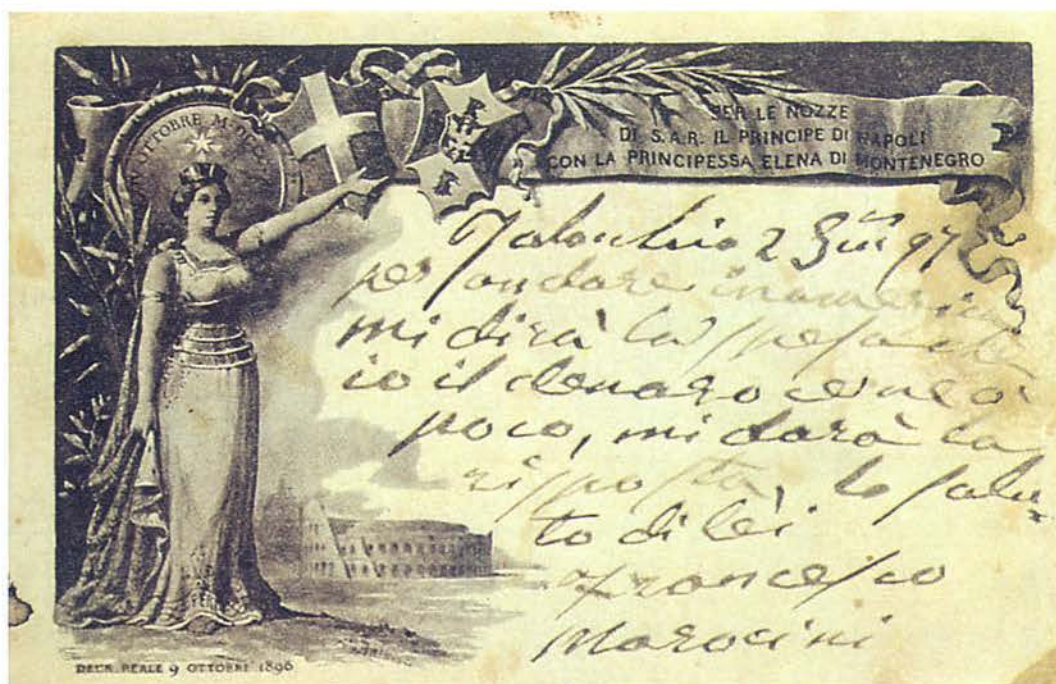 OTTOBRE M·DCCC
PER LE NOZZE
DI S.A.R. IL PRINCIPE DI NAPOLI
CON LA PRINCIPESSA ELENA DI MONTENEGRO
2 97
per andare in america
mi dirà la spesa che
io il denaro ce ne ò
poco, mi darà la
risposta, lo salu-
to di lei
Francesco
Marocini
DECR. REALE 9 OTTOBRE 1896